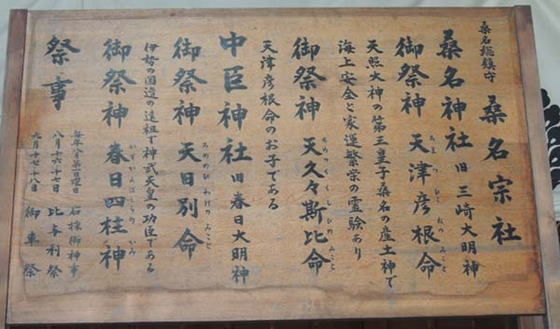 桑名総鎮守 桑名宗社
桑名神社 旧三崎大明神
御祭神 天津彦根命
天照大神の第三皇子桑名の産土神で
海上安全と家運繁栄の霊験あり
御祭神 天久々斯比命
天津彦根命のお子である
中臣神社 旧春日大明神
御祭神 天日別命
伊勢の国造の遠祖で神武天皇の功臣である
御祭神 春日四柱神
祭事
石採御神事
八月十六十七日 比与利祭
九月十七十八日 御車祭